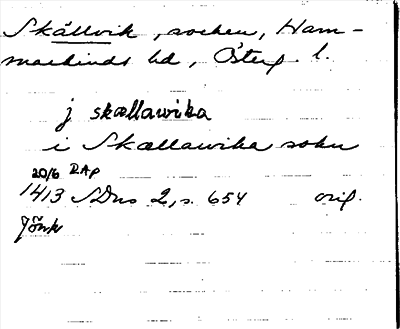 Skällvik, socken, Ham-
markinds hd, Östergl. l.
j skællawika
i Skællawika sokn
20/6 RAp
1413 SDns 2, s. 654 orig.
Jönk